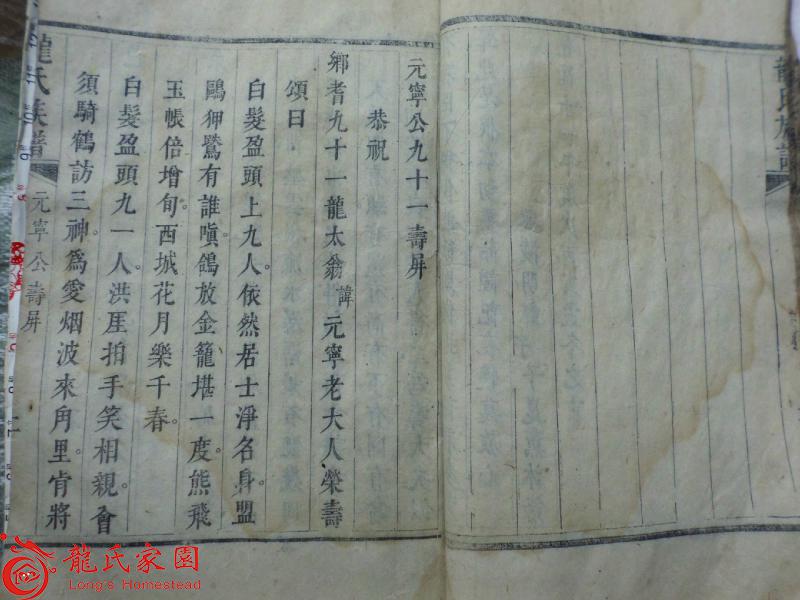 元寧公九十一壽屏
恭祝
鄉耆九十一龍太翁諱元寧老大人榮壽
頌曰
白髮盈頭上九人。依然居士淨名身。盟
鷗狎鷺有誰嗔。鴿放金籠堪一度。熊飛
玉帳倍增旬。西城花月樂千春。
白髮盈頭九一人。洪厓拍手笑相親。會
須騎鶴訪三神。爲愛烟波來甪里。肯將
龍氏族譜
元寧公壽屏
龍氏家園
Long's Homestead